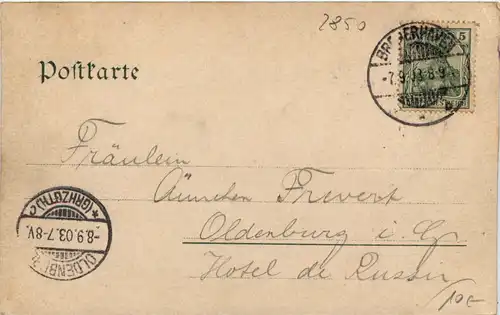 2850
BREMERHAVEN
-7.9.03.8-9
5
Postkarte
Fräulein
Ännchen Frevert
Oldenburg i. G
Hotel de Russir
OLDENBURG
-8.9.03.7-8V.
* (GRHZGTH.) c